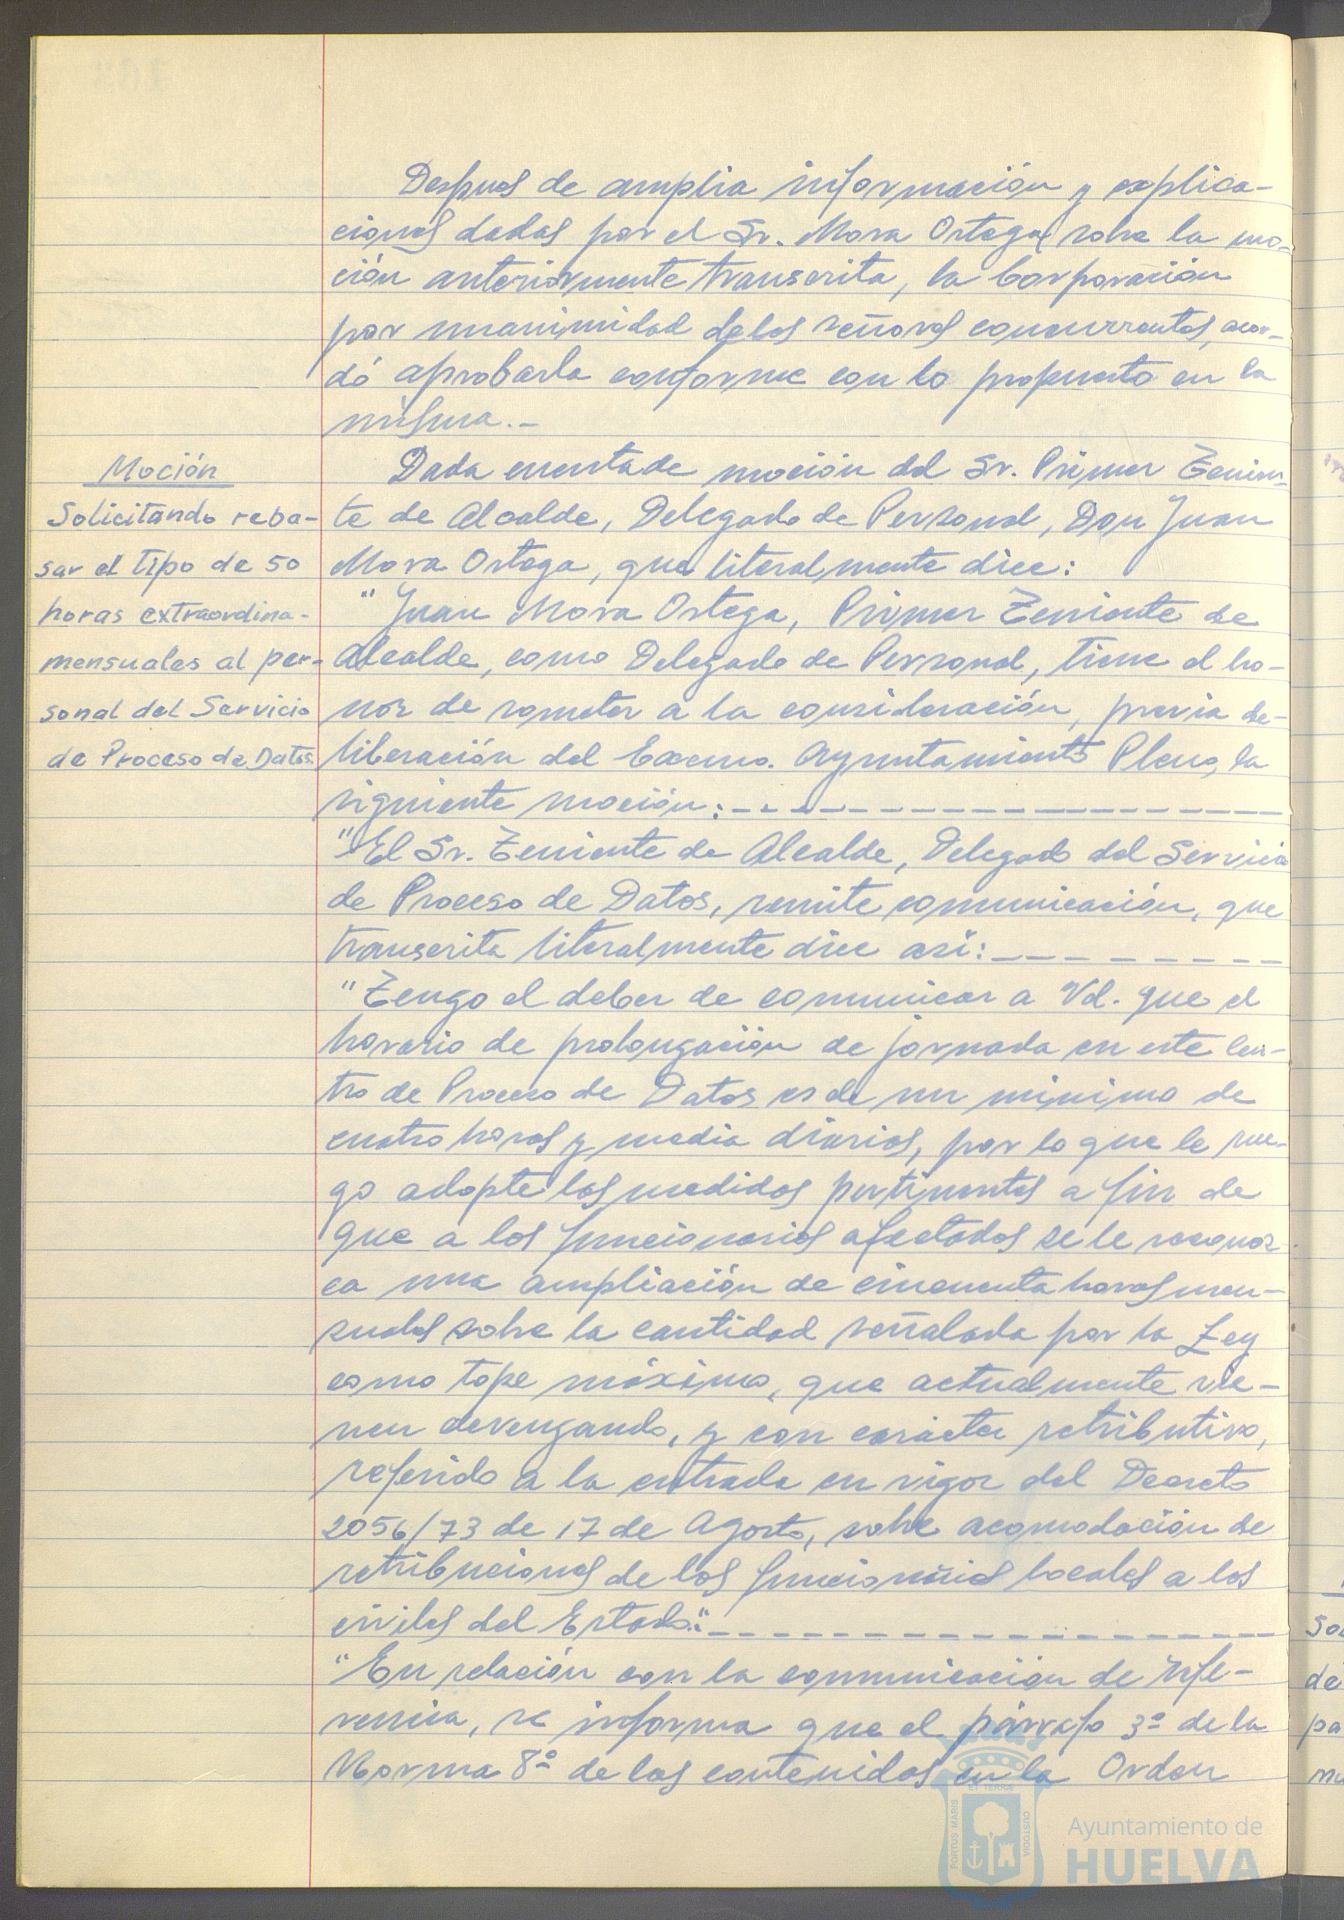 Despues de amplia información y explica-
ciones dadas por el Sr. Mora Ortega, sobre la mo-
ción anteriormente transcrita, la Corporación
por unanimidad de los señores concurrentes, acor-
dó aprobarla conforme con lo propuesto en la
misma.-
Moción
Solicitando reba-
sar el tipo de 50
horas extraordina-
mensuales al per-
sonal del Servicio
de Proceso de Datos.
Dada cuenta de moción del Sr. Primer Tenien-
te de Alcalde, Delegado de Personal, Don Juan
Mora Ortega, que literalmente dice:
"Juan Mora Ortega, Primer Teniente de
Alcalde, como Delegado de Personal, tiene el ho-
nor de someter a la consideración, previa de-
liberación del Excmo. Ayuntamiento Pleno, la
siguiente moción:-
"El Sr. Teniente de Alcalde, Delegado del Servicio
de Proceso de Datos, remite comunicación, que
transcrita literalmente dice asi:-
"Tengo el deber de comunicar a Vd. que el
horario de prolongación de jornada en este Cen-
tro de Proceso de Datos es de un minimo de
cuatro horas y media diarias, por lo que le rue-
go adopte las medidas pertinentes a fin de
que a los funcionarios afectados se le reconoz-
ca una ampliación de cincuenta horas men-
suales sobre la cantidad señalada por la Ley
como tope máximo, que actualmente vie-
nen devengando, y con carácter retributivo,
referido a la entrada en vigor del Decreto
2056/73 de 17 de Agosto, sobre acomodación de
retribuciones de los funcionarios locales a los
civiles del Estado."-
"En relación con la comunicación de refe-
rencia, se informa que el párrafo 3º de la
Norma 8º de las contenidas en la Orden
so
de
pa
PORTUS MARIS
ET TERRÆ
CUSTODIA
Ayuntamiento de
HUELVA